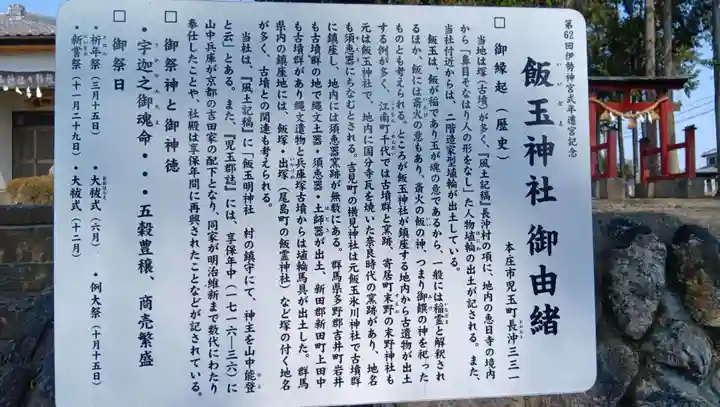 第62回伊勢神宮式年遷宮記念
飯玉神社 御由緒
いいだま
本庄市児玉町長沖三三一
□ 御縁起（歴史）
当地は塚（古墳）が多く、『風土記稿』長沖村の項に、地内の恵日寺の境内
から「鼻目そなはり人の形をなし」た人物埴輪の出土が記される。また、
当社付近からは、二階造家型埴輪が出土している。
飯玉は、飯が稲であり玉が魂の意であるから、一般には稲霊と解釈され
るほか、飯には斎火の意もあり、斎火の飯の神、つまり御饌の神を祀った
ものとも考えられる。ところが飯玉神社が鎮座する地内から古遺物が出土
する例が多く、江南町千代では古墳群と窯跡、寄居町末野の末野神社も
元は飯玉神社で、地内に国分寺瓦を焼いた奈良時代の窯跡があり、地名
も須恵器にちなむとされる。吉見町の横見神社は元飯玉氷川神社で古墳群
に鎮座し、地内には須恵器窯跡が無数にある。群馬県多野郡吉井町岩井
も古墳群の地で縄文土器・須恵器・土師器が出土、新田郡新田町上田中
も古墳群があり縄文遺物と兵庫塚古墳からは埴輪馬具が出土した。群馬
県内の鎮座地には、飯塚・出塚（尾島町の飯霊神社）など塚の付く地名
が多く、古墳との関連も考えられる。
当社は、『風土記稿』に「飯玉明神社 村の鎮守にて、神主を山中能登
と云」とある。また、『児玉郡誌』には、享保年中（一七一六―三六）に
山中兵庫が京都の吉田家の配下となり、同家が明治維新まで数代にわたり
奉仕したことや、社殿は享保年間に再興されたことなどが記されている。
□ 御祭神と御神徳
・宇迦之御魂命・・・五穀豊穣、商売繁盛
□ 御祭日
・祈年祭（三月十五日） ・大祓式（六月） ・例大祭（十月十五日）
・新嘗祭（十一月二十九日） ・大祓式（十二月）